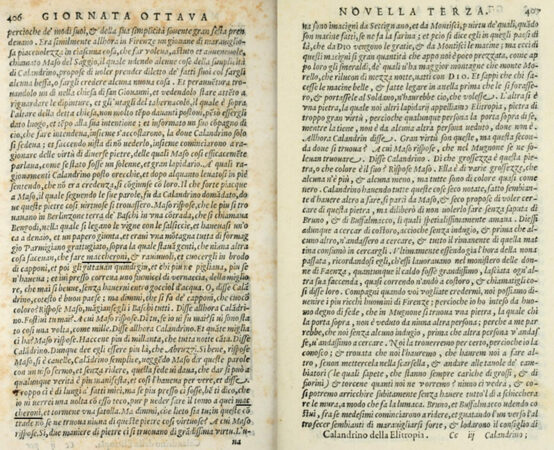 406 GIORNATA OTTAVA
percioche de' modi suoi, & della sua simplicità souente gran festa pren
deuano. Era similmente allhora in Firenze un giouane di marauiglio-
sa piaceuolezza, in ciascuna cosa, che far voleua, astuto et aueneuole,
chiamato Maso del Saggio, il quale udendo alcune cose della simplicità
di Calandrino, propose di uoler prender diletto de' fatti suoi col fargli
alcuna beffa, o fargli credere alcuna nuoua cosa. Et per auentura tro-
uandolo un dì nella chiesa di san Giouanni, et vedendolo stare attēto a
riguardare le dipinture, et gl'intagli del tabernacolo, il quale è sopra
l'altare della detta chiesa, non molto tēpo dauanti postoui, pēsò essergli
dato luogo, et tēpo alla sua intentione; et informato un suo cōpagno di
ciò, che fare intendeua, insieme s'accostarono, la doue Calandrino solo
si sedeua; et facendo uista di nō uederlo, insieme cominciarono a ra-
gionare delle uirtù di diuerse pietre, delle quali Maso così efficacemēte
parlaua, come se stato fosse un solenne, et gran lapidario. A quali ra-
gionamenti Calandrino posto orecchie, et dopo alquanto leuatosi in piè
sentendo, che nō era credenza, si cōgiunse cō loro. Il che forte piacque
a Maso, il quale seguendo le sue parole, fu da Calandrino domādato, do
ue queste pietre così virtuose si trouassero. Maso rispose, che le piu si tro
uauano in Berlinzone terra de' Baschi in vna cōtrada, che si chiamaua
Bengodi, nella quale si legano le vigne con le salsiccie, et haueuasi un'o
ca a denaio, et un papero giunta, et eraui vna mōtagna tutta di formag
gio Parmigiano grattugiato, sopra la quale stauā genti, che niuna altra
cosa faceuan, che fare maccheroni, & rauiuoli, et cuocergli in brodo
di capponi, et poi gli gittauan quindi giu, et chi piu ne pigliaua, piu se
n'haueua; et iui presso correua vno fiumicel di vernaccia, della miglio
re, che mai si beuue, senza hauerui entro gocciol d'acqua. O, disse Cala
drino, cotesto è buon paese; ma dimmi, che si fa de' capponi, che cuocō
coloro? Rispose Maso, māgiansegli i Baschi tutti. Disse allhora Calādri
no. Fostiui tu mai? A cui Maso rispose. Di tu, se io ui fu mai? si ui sono sta
to così una volta, come mille. Disse allhora Calandrino. Et quāte miglia
ci ha? Maso rispose. Haccene piu di millanta, che tutta notte canta. Disse
Calādrino. Dunque dee egli essere piu là, che Abruzzi. Sì bene, rispose
Maso, si è cauelle. Calādrino semplice, ueggēdo Maso dir queste parole
con un uiso fermo, et senza ridere, quella fede ui daua, che dar si può a
qualunque verità è piu manifesta, et così l'haueua per vere, et disse.
Troppo ci è di lungi a' fatti miei, ma se piu presso ci fosse, bē ti dico, che
io ui uerrei una uolta cō esso teco, pur p̱ ueder fare il tomo a quei mac
cheroni, et tormene vna satolla. Ma dimmi, che lieto sia tu; in queste cō
trade nō se ne truoua niuna di queste pietre cosi virtuose? A cui Maso
rispose. Sì, due maniere di pietre ci si truouano di grādissima virtù. L'u-
na
NOVELLA TERZA. 407
na sono i macigni da Settignano, et da Montisci, p̱ virtù de' quali, quādo
son macine fatti, se ne fa la farina; et per ciò si dice egli in quegli paesi di
là, che da DIO vengono le gratie, & da Montisci le macine; ma ecci di
questi macigni sì gran quantità, che appo noi è poco prezzata, come ap
po loro gli smeraldi, de' quali u'ha maggior montagne che monte Mo-
rello, che rilucon di mezza notte, vatti con DIO. Et sappi che chi fa-
cesse le macine belle, & fatte legare in anella prima che le si forasse-
ro, & portassele al Soldano, n'haurebbe ciò, che volesse. L'altra si è
vna pietra, la quale noi altri lapidarij appelliamo Elitropia, pietra di
troppo gran virtù, percioche qualunque persona la porta sopra di se,
mentre la tiene, non è da alcuna altra persona veduto, doue non è.
Allhora Calādrin disse. Gran virtù son queste, ma questa secon-
da doue si truoua? A cui Maso rispose, che nel Mugnone se ne so-
leuan trouare. Disse Calandrino. Di che grossezza è questa pie-
tra, o che colore è il suo? Rispose Maso. Ella è di varie grossezze, che
alcuna n'è piu, & alcuna meno, ma tutte son di colore quasi come
nero. Calandrino hauendo tutte queste cose seco notate, fatto sembian-
te d'hauere altro a fare, si partì da Maso, & seco propose di voler cer-
care di questa pietra, ma diliberò di non uolerlo fare senza saputa di
Bruno, & di Buffalmacco, li quali spetialissimamente amaua. Diessi
adunque a cercar di costoro, acciòche senza indugio, & prima che al-
cuno altro, n'andassero a cercare, & tutto il rimanente di quella mat-
tina consumò in cercargli. Vltimamente essendo già l'hora della nona
passata, ricordandosi egli, ch'essi lauorauano nel monistero delle don-
ne di Faenza, quantunque il caldo fosse grandissimo, lasciata ogn'al-
tra sua faccenda, quasi correndo n'andò a costoro, & chiamatigli co-
sì disse loro. Compagni quando voi vogliate credermi, noi possiamo di-
uenire i piu ricchi huomini di Firenze; percioche io ho inteso da huo-
mo degno di fede, che in Mugnone si truoua vna pietra, la quale chi
la porta sopra, non è veduto da niuna altra persona; perche a me par-
rebbe, che noi senza alcuno indugio, prima che altra persona v'andas
se, u'andassimo a cercare. Noi la troueremo per certo, percioche io la
conosco; & trouata che noi l'hauremo, che hauren noi a fare al-
tro, se non mettercela nella scarsella, & andare alle tauole de' cam-
biatori (le quali sapete, che stanno sempre cariche di grossi, & di
fiorini) & torcene quanti noi ne vorremo? niuno ci vedrà, & co-
sì potremo arricchire subitamente senza hauere tutto dì a schicche-
ra le mura, a modo che fa la lumaca. Bruno, et Buffalmacco udendo co
stui, fra se medesimi cominciarono a ridere, et guatando l'un verso l'al
tro fecer sembianti di marauigliarsi forte, & lodarono il consiglio di
Calandrino della Elitropia. Cc iij Calandrino;